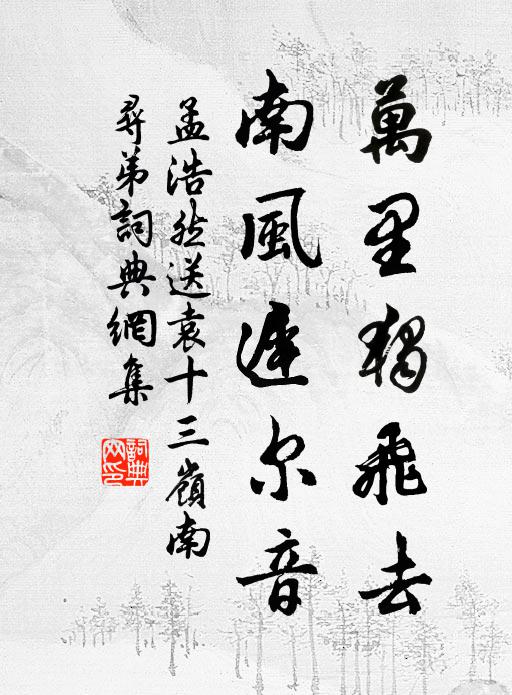 萬里獨飛去
南風遲尔音
孟浩然送袁十三嶺南
尋弟詞典網集
詞典网印